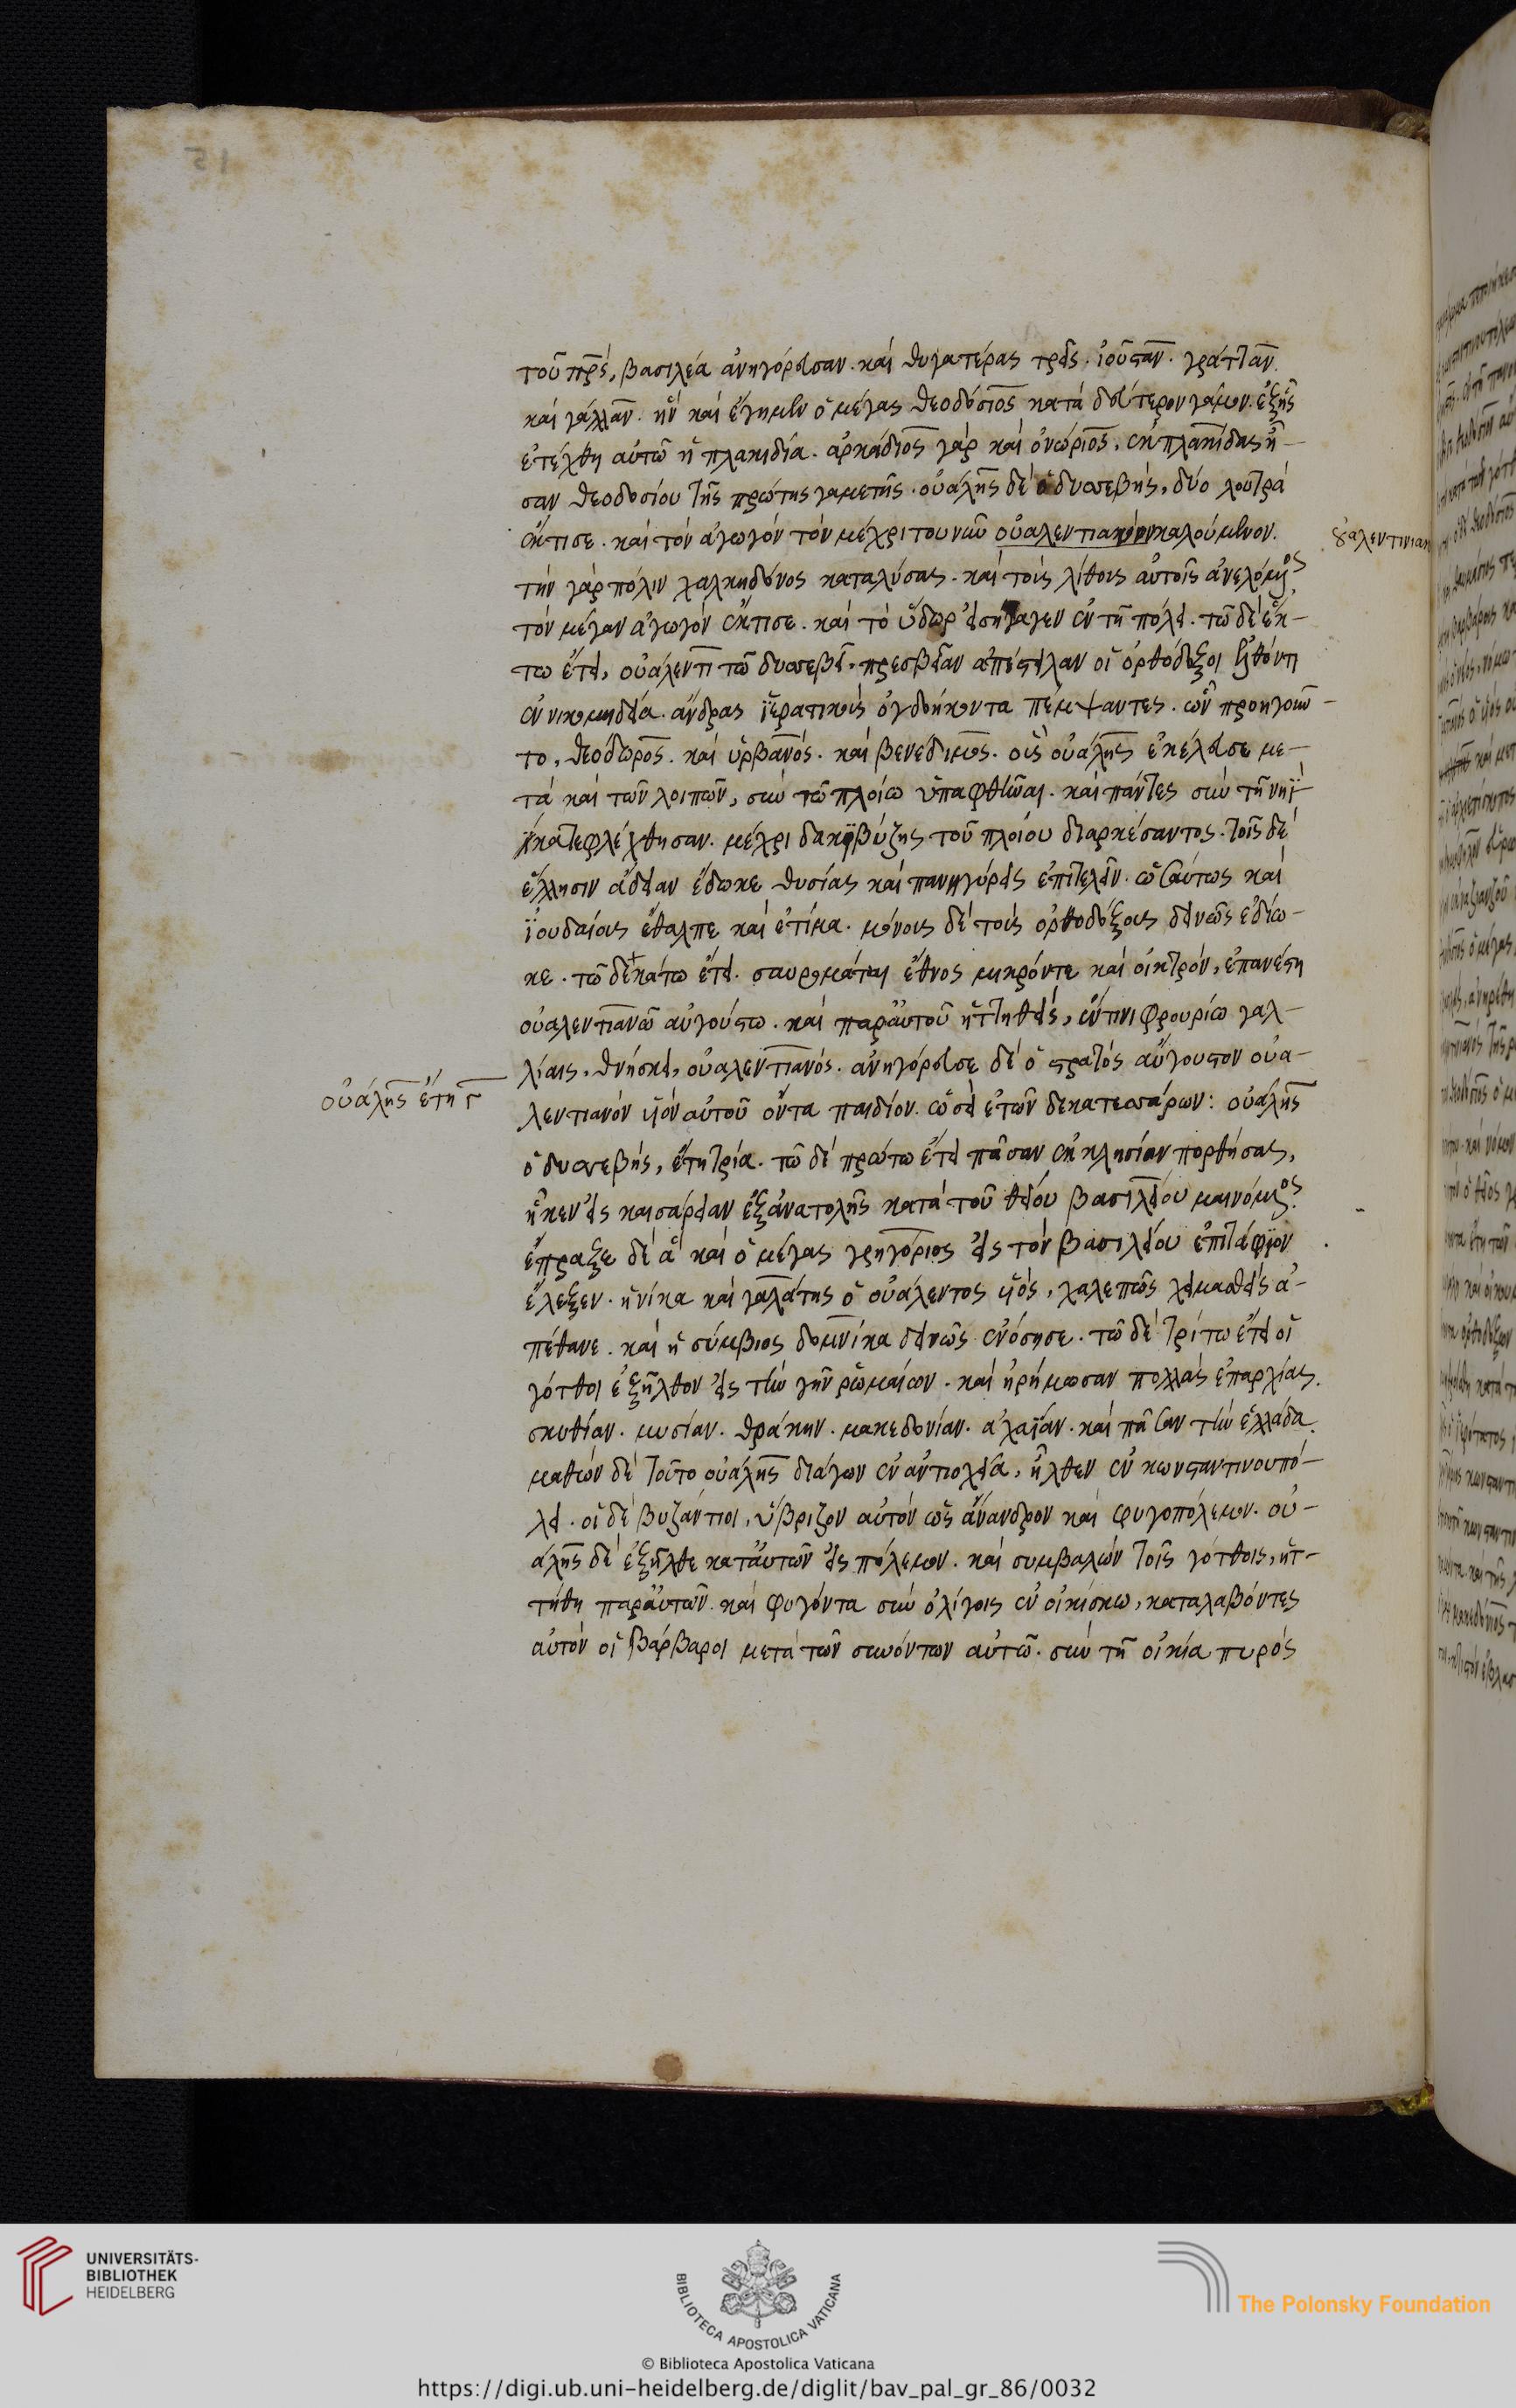 τοῦ πρς, βασιλέα ἀνηγόρευσαν. καὶ θυγατέρας τρεῖς. ἰοῦσταν. γράτιαν.
καὶ γάλλαν. ἣν καὶ ἔγημεν ὁ μέγας θεοδόσιος κατὰ δεύτερον γάμον. ἐξ ἧς
ἐτέχθη αὐτῶ ἡ πλακιδία. ἀρκάδιος γὰρ καὶ ὀνώριος, ἐκ πλακίδας ἦ-
σαν θεοδοσίου τῆς πρώτης γαμετῆς. οὐάλης δὲ ὁ δυσσεβὴς, δύο λουτρὰ
ἔκτισε. καὶ τὸν ἀγωγὸν τὸν μέχρι του νῦν οὐαλεντιακὸν καλούμενον.
τὴν γὰρ πόλιν χαλκηδόνος καταλύσας. καὶ τοὺς λίθους αὐτοῖς ἀνελόμος
τὸν μέγαν ἀγωγὸν ἔκτισε. καὶ τὸ ὕδωρ εἰσήγαγεν ἐν τῆ πόλει. τῶ δὲ ἕκ-
τω ἔτει, οὐάλεντι τῶ δυσσεβεῖ, πρεσβείαν ἀπέστειλαν οἱ ὀρθόδοξοι ἐλθόντι
ἐν νικομηδεία. ἄνδρας ἱερατικοὺς ὀγδοήκοντα πέμψαντες. ὧν προηγοῦν-
το, θεόδωρος. καὶ οὐρβανός. καὶ βενέδιμος. οὓς οὐάλης ἐκέλευσε με-
τὰ καὶ τῶν λοιπῶν, σὺν τῶ πλοίω ὑπαφθῆναι. καὶ πάντες σὺν τῆ νηῒ
κατεφλέχθησαν. μέχρι δακϊβύζης τοῦ πλοίου διαρκέσαντος. τοῖς δὲ
ἕλλησιν ἄδειαν ἔδωκε θυσίας καὶ πανηγύρεις ἐπιτελεῖν. ὡσαύτως καὶ
ϊουδαίους ἔθαλπε καὶ ἐτίμα. μόνους δὲ τοὺς ὀρθοδόξους δεινῶς ἐδίω-
κε. τῶ δεκάτω ἔτει. σαυρομάται ἔθνος μικρόν τε καὶ οἰκτρὸν, ἐπανέστη
οὐαλεντιανῶ αὐγούστω. καὶ παρ αὐτοῦ ἡττηθεὶς, ἔν τινι φρουρίω γαλ-
λίαις, θνήσκει, οὐαλεντιανός. ἀνηγόρευσε δὲ ὁ στρατὸς αὔγουστον οὐα-
λεντιανὸν υἱὸν αὐτοῦ ὄντα παιδίον. ὡσεὶ ἐτῶν δεκατεσσάρων: οὐάλης
οὐάλης ἔτη γ
ὁ δυσσεβὴς, ἔτη τρία. τῶ δὲ πρώτω ἔτει πᾶσαν ἐκκλησίαν πορθήσας,
ἧκεν εἰς καισάρειαν ἐξ ἀνατολῆς κατὰ τοῦ θείου βασιλείου μαινόμος.
ἔπραξε δὲ ἃ καὶ ὁ μέγας γρηγόριος εἰς τὸν βασιλείου ἐπιτάφιον
ἔλεξεν. ἡνίκα καὶ γαλάτης ὁ οὐάλεντος υἱὸς, χαλεπῶς χειμασθεὶς ἀ-
πέθανε. καὶ ἡ σύμβιος δομνίκα δεινῶς ἐνόσησε. τῶ δὲ τρίτω ἔτει οἱ
γότθοι ἐξῆλθον εἰς τὴν γῆν ῥωμαίων. καὶ ἠρήμωσαν πολλὰς ἐπαρχίας.
σκυθίαν. μυσίαν. θράκην. μακεδονίαν. ἀχαΐαν. καὶ πᾶσαν τὴν ἑλλάδα.
μαθὼν δὲ τοῦτο οὐάλης διάγων ἐν ἀντιοχεία, ἦλθεν ἐν κωνσταντινουπό-
λει. οἱ δὲ βυζάντιοι, ὕβριζον αὐτὸν ὡς ἄνανδρον καὶ φυγοπόλεμον. οὐ-
άλης δὲ ἐξῆλθε κατ αὐτῶν εἰς πόλεμον. καὶ συμβαλὼν τοῖς γότθοις, ἡτ-
τήθη παρ αὐτῶν. καὶ φυγόντα σὺν ὀλίγοις ἐν οἰκίσκω, καταλαβόντες
αὐτὸν οἱ βάρβαροι μετὰ τῶν συνόντων αὐτῶ. σὺν τῆ οἰκία πυρὸς
UNIVERSITÄTS-
BIBLIOTHEK
HEIDELBERG
BIBLIOTECA APOSTOLICA VATICANA
The Polonsky Foundation
© Biblioteca Apostolica Vaticana
https://digi.ub.uni-heidelberg.de/diglit/bav_pal_gr_86/0032